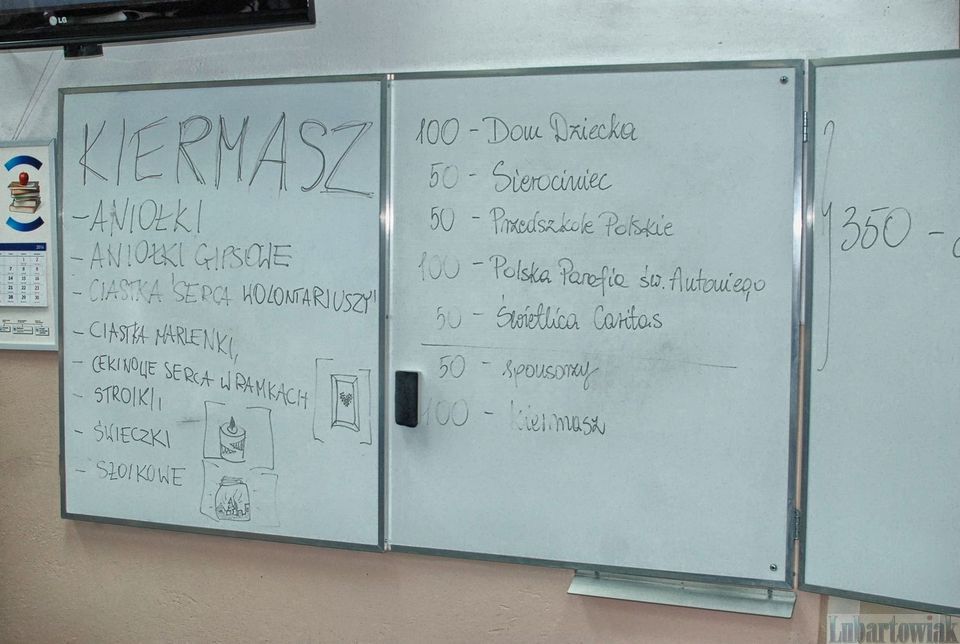 LG
KIERMASZ
- ANIOŁKI
- ANIOŁKI GIPSOWE
- CIASTKA "SERCA WOLONTARIUSZY"
- CIASTKA MARLENKI,
- CEKINOWE SERCA W RAMKACH
- STROIKI,
- ŚWIECZKI
- SŁOIKOWE
100 - Dom Dziecka
50 - Sierociniec
50 - Przedszkole Polskie
100 - Polska Parafia św. Antoniego
50 - Świetlica Caritas
50 - sponsorzy
100 - kiermasz
350 -
Lubartowiak